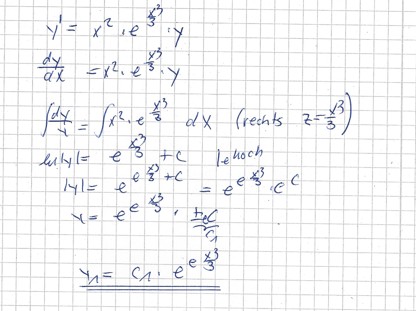 y' = x² · e^(x³/3) · y
dy/dx = x² · e^(x³/3) · y
∫ dy/y = ∫ x² · e^(x³/3) dx (rechts z = x³/3)
ln|y| = e^(x³/3) + C | e hoch
|y| = e^(e^(x³/3) + C) = e^(e^(x³/3)) · e^C
y = e^(e^(x³/3)) · ±e^C
C₁
y₁ = C₁ · e^(e^(x³/3))